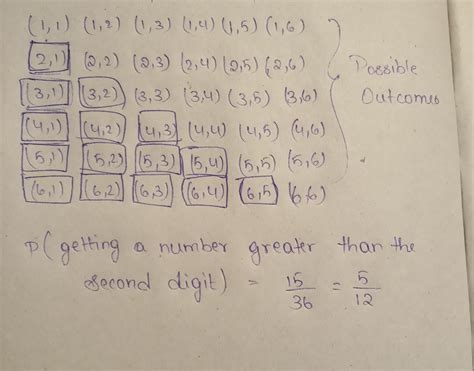 (1,1) (1,2) (1,3) (1,4) (1,5) (1,6)
(2,1) (2,2) (2,3) (2,4) (2,5) (2,6) Possible
(3,1) (3,2) (3,3) (3,4) (3,5) (3,6) Outcomes
(4,1) (4,2) (4,3) (4,4) (4,5) (4,6)
(5,1) (5,2) (5,3) (5,4) (5,5) (5,6)
(6,1) (6,2) (6,3) (6,4) (6,5) (6,6)
P(getting a number greater than the
second digit) = 15/36 = 5/12